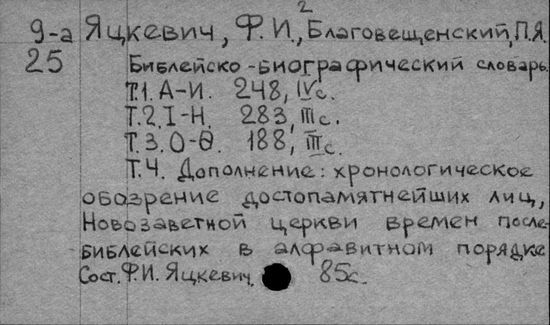 2
9-а Яцкевич, Ф.И., Благовещенский, П.Я.
25 Библейско-биографический словарь.
Т.1. А-И. 248, IVс.
Т.2. І-Н. 283, IIIс.
Т.3. О-Ѳ. 188, IIIс.
Т.4. Дополнение: хронологическое
обозрение достопамятнейших лиц,
Новозаветной церкви времен после-
библейских в алфавитном порядке
Сост. Ф.И. Яцкевич. 85с.